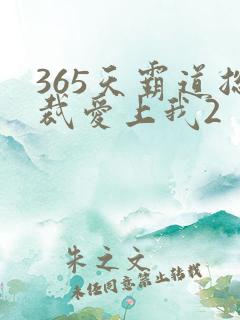 365天霸道总
裁爱上我2
朱之文
未经同意禁止转载